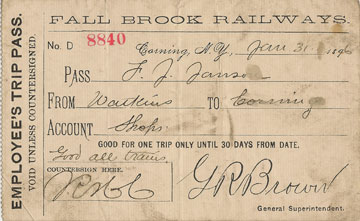 EMPLOYEE'S TRIP PASS.
VOID UNLESS COUNTERSIGNED.
FALL BROOK RAILWAYS.
No. D 8840 Corning, N.Y., Jan 31 1896
PASS F. J. Janson
FROM Watkins TO Corning
ACCOUNT Shops
GOOD FOR ONE TRIP ONLY UNTIL 30 DAYS FROM DATE.
Good all trains.
COUNTERSIGN HERE.
G R Brown
General Superintendent.